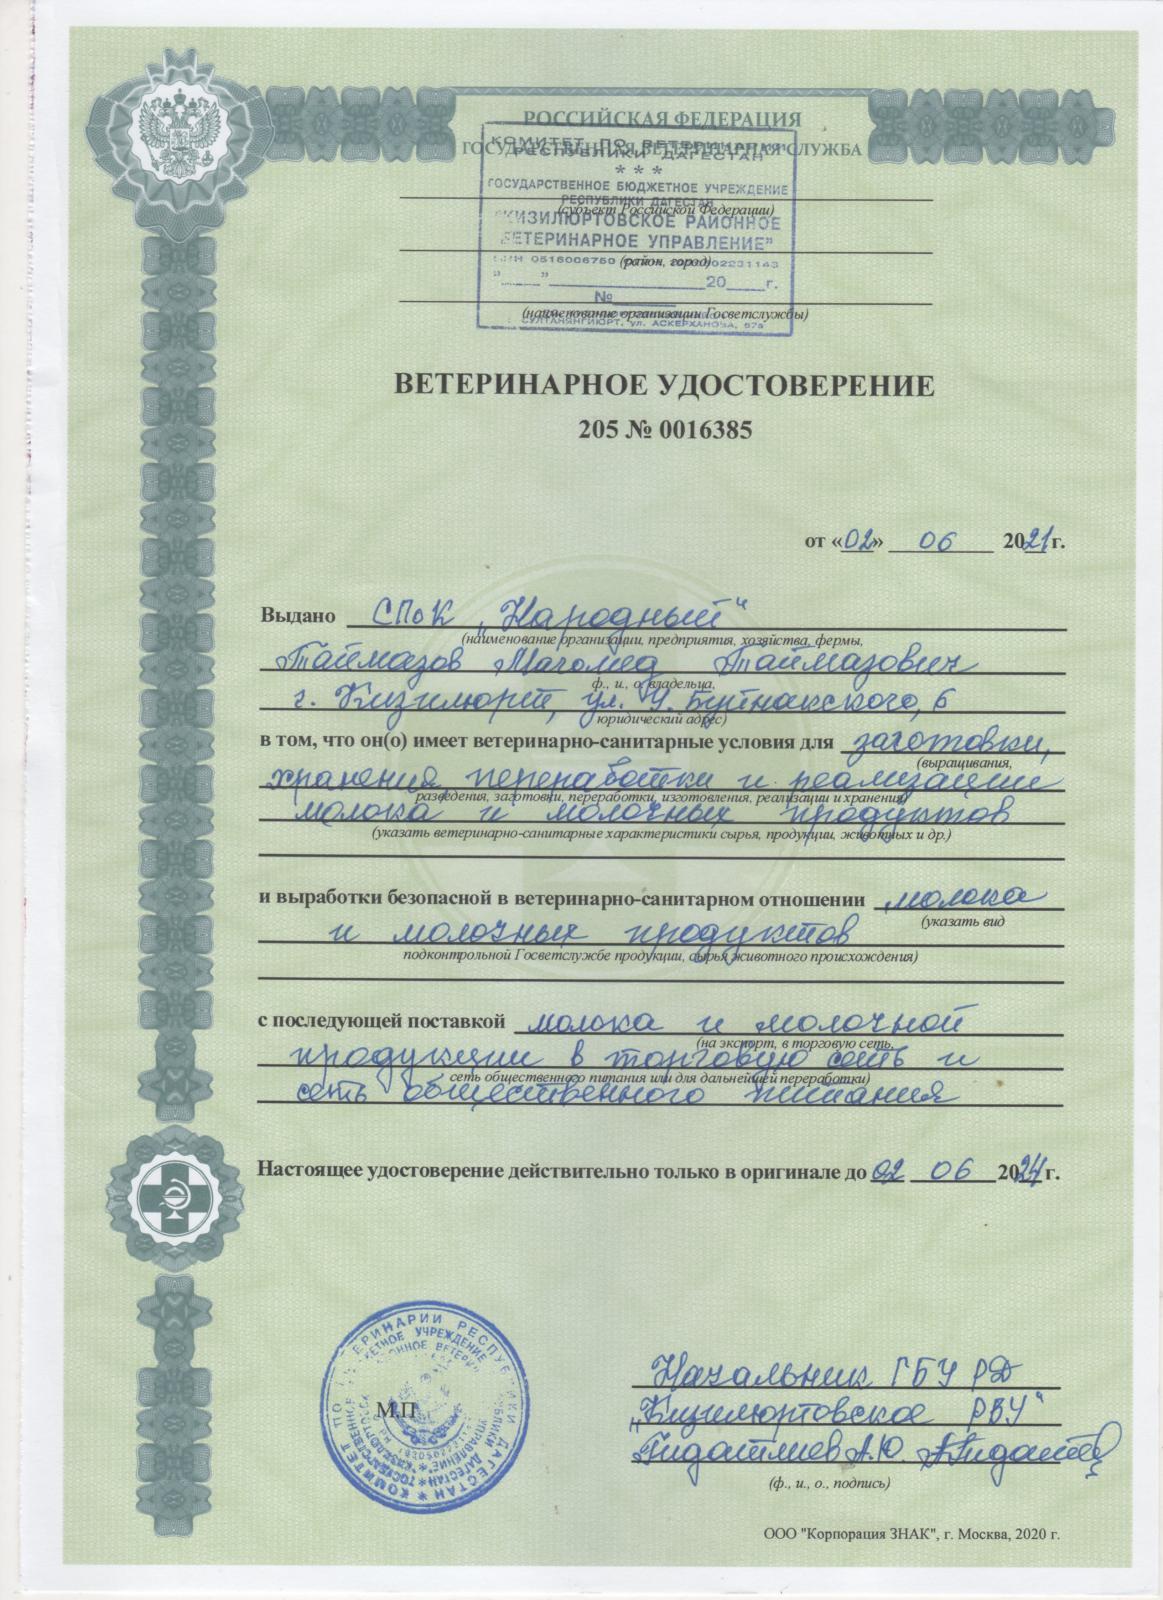 РОССИЙСКАЯ ФЕДЕРАЦИЯ
ГОСУДАРСТВЕННАЯ ВЕТЕРИНАРНАЯ СЛУЖБА
КОМИТЕТ ПО ВЕТЕРИНАРИИ
РЕСПУБЛИКИ ДАГЕСТАН
* * *
ГОСУДАРСТВЕННОЕ БЮДЖЕТНОЕ УЧРЕЖДЕНИЕ
РЕСПУБЛИКИ ДАГЕСТАН
(субъект Российской Федерации)
"КИЗИЛЮРТОВСКОЕ РАЙОННОЕ
ВЕТЕРИНАРНОЕ УПРАВЛЕНИЕ"
ИНН 0516006750
(район, город)
"____" ____________ 20____г.
№________
(наименование организации Госветслужбы)
СУЛТАНЯНГИЮРТ, ул. АСКЕРХАНОВА, 67а
ВЕТЕРИНАРНОЕ УДОСТОВЕРЕНИЕ
205 № 0016385
от «02» 06 2021г.
Выдано СПоК „Народный“
(наименование организации, предприятия, хозяйства, фермы,
Таймазов Магомед Таймазович
ф., и., о. владельца,
г. Кизилюрт, ул. У. Буйнакского, 6
юридический адрес)
в том, что он(о) имеет ветеринарно-санитарные условия для заготовки,
(выращивания,
хранения, переработки и реализации
разведения, заготовки, переработки, изготовления, реализации и хранения)
молока и молочных продуктов
(указать ветеринарно-санитарные характеристики сырья, продукции, животных и др.)
и выработки безопасной в ветеринарно-санитарном отношении молока
(указать вид
и молочных продуктов
подконтрольной Госветслужбе продукции, сырья животного происхождения)
с последующей поставкой молока и молочной
(на экспорт, в торговую сеть,
продукции в торговую сеть и
сеть общественного питания или для дальнейшей переработки)
сеть общественного питания
Настоящее удостоверение действительно только в оригинале до 02 06 2024г.
КОМИТЕТ ПО ВЕТЕРИНАРИИ РЕСПУБЛИКИ ДАГЕСТАН
М.П.
Начальник ГБУ РД
„Кизилюртовское РВУ“
А.Ю.
(ф., и., о., подпись)
ООО "Корпорация ЗНАК", г. Москва, 2020 г.